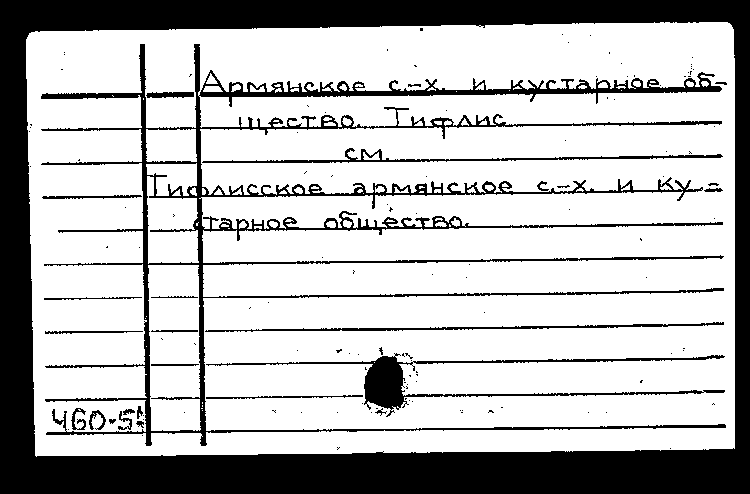 Армянское с.-х. и кустарное об-
щество. Тифлис
см.
Тифлисское армянское с.-х. и ку-
старное общество.